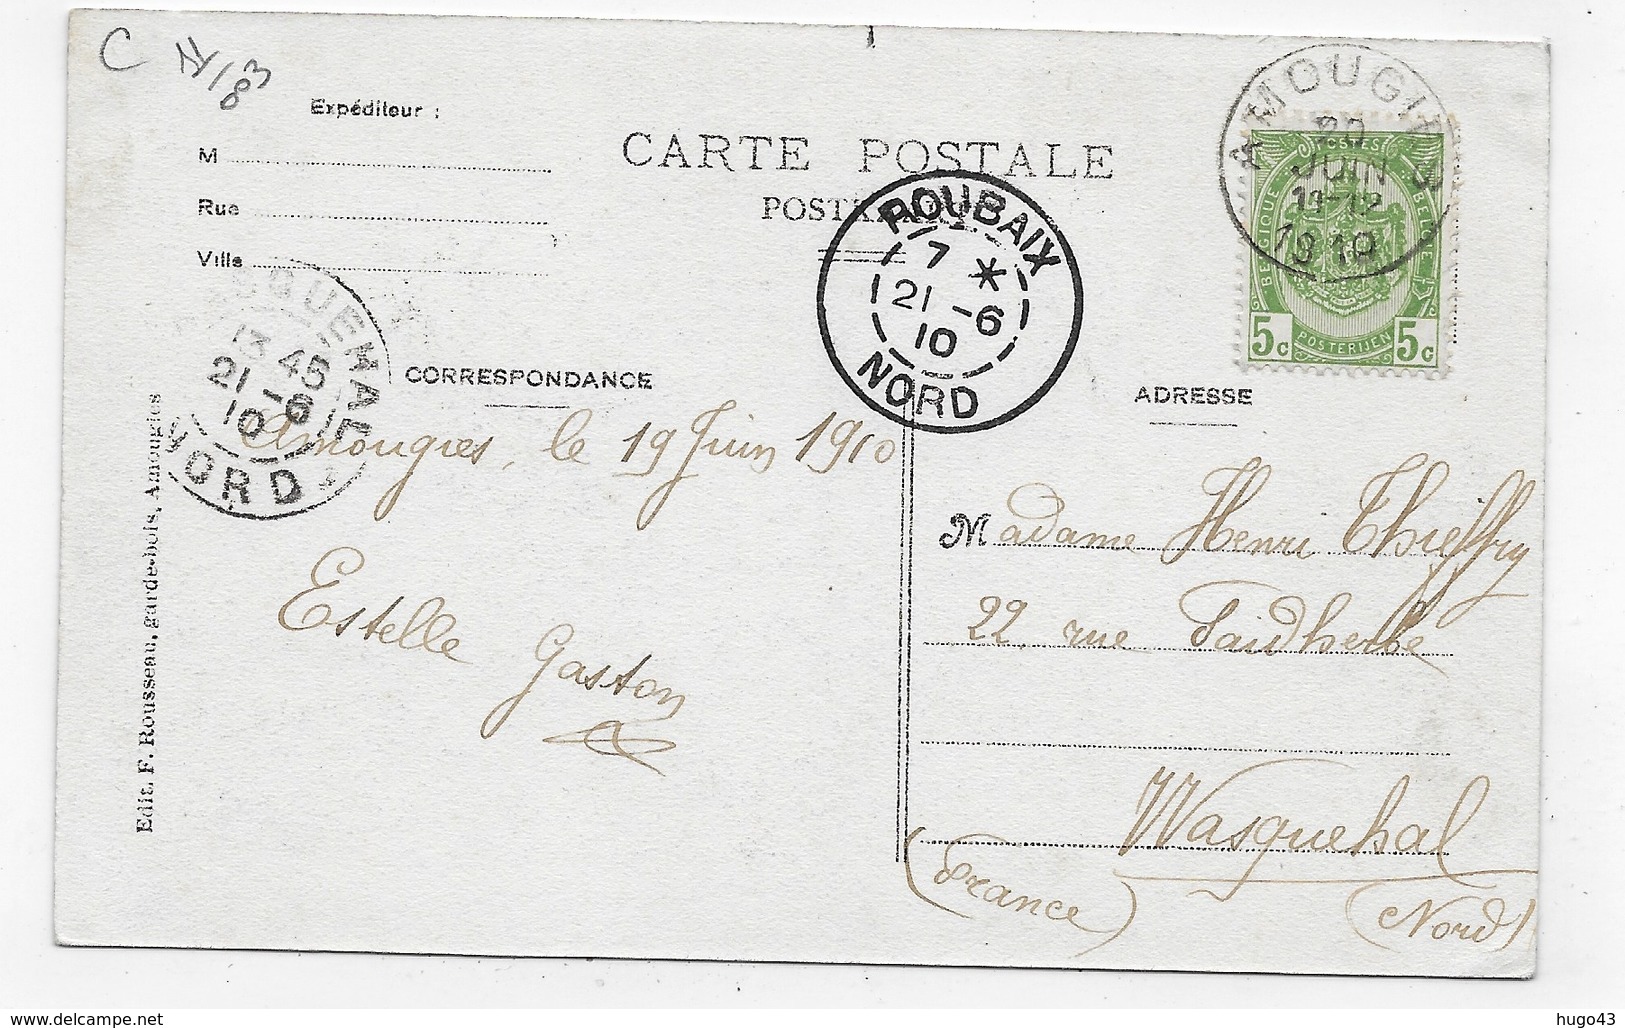 C
Expéditeur :
M
Rue
Ville
CARTE POSTALE
CORRESPONDANCE
ADRESSE
ROUBAIX
7 *
21 -6
10
NORD
20
JUIN
11-12
1910
BELGIQUE
5c POSTERIJEN 5c
13 45
21 -6
10
NORD
Amougies, le 19 Juin 1910
Estelle Gaston
Madame Henri Thieffry
22, rue Faidherbe
Wasquehal
(France)
(Nord)
Edit. F. Rousseau, garde-bois, Amougies
hugo43